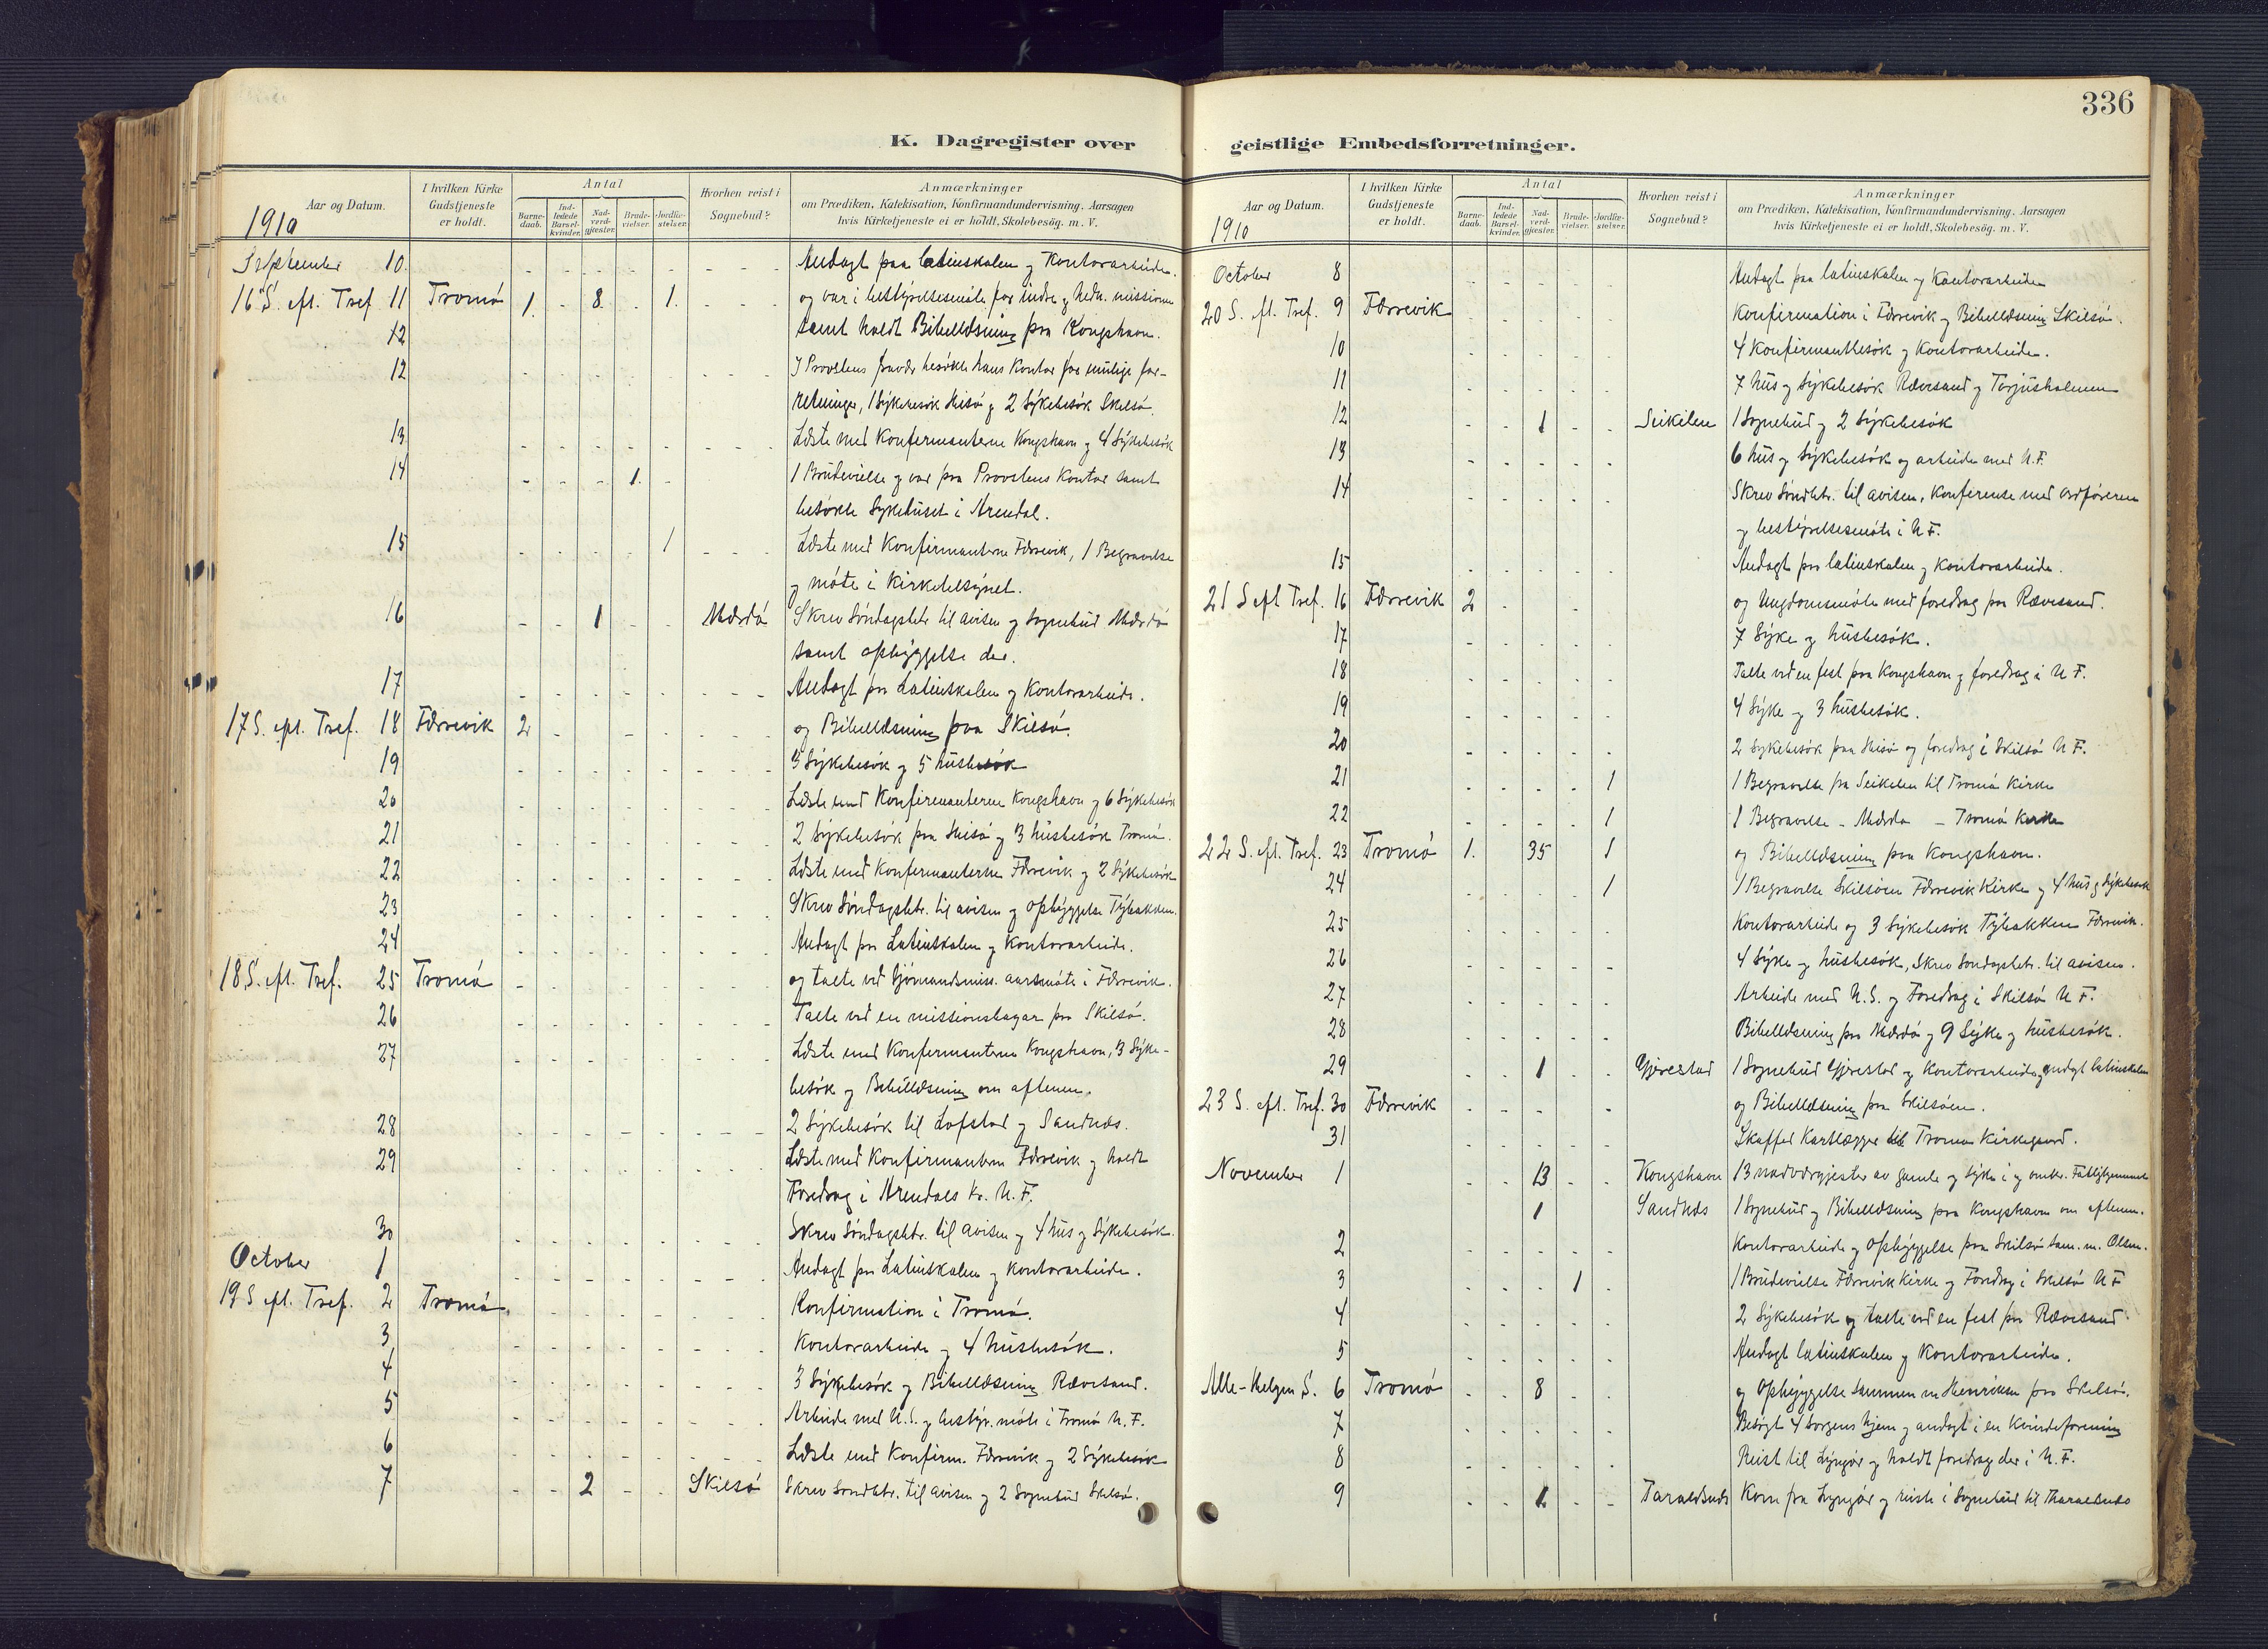 K. Dagregister over
Aar og Datum.
1910
I hvilken Kirke Gudstjeneste er holdt.
Antal
Barne-daab.
Ind-ledede Barsel-kvinder.
Nad-verd-gjæster.
Brude-vielser.
Jordfæ-stelser.
Hvorhen reist i Sognebud?
Anmærkninger
om Prædiken, Katekisation, Konfirmandundervisning. Aarsagen
hvis Kirketjeneste ei er holdt, Skolebesög. m. V.
September 10. Andagt paa latinskolen og Kontorarbeide.
16 S. eft. Tref. 11 Tromö 1. 8. 1. og var i bestyrelsesmöte for indre og hedn. missionen
12 samt holdt Bibellæsning paa Kongshavn.
12 I Provstens fravær besökte hans Kontor for mulige for-
retninger, 1 Sykebesök Hisö og 2 Sykebesök Skilsö.
13 Læste med Konfirmanterne Kongshavn og 4 Sykebesök
14 1. 1 Brudevielse og var paa Provstens Kontor samt
besökte Sykehuset i Arendal.
15 1 Læste med Konfirmanterne Færvik, 1 Begravelse
og möte i Kirketilsynet.
16 1 Mærdö Skrev Söndagsbetr. til avisen og Sognebud Mærdö
samt opbyggelse der.
17 Andagt paa Latinskolen og Kontorarbeide.
17 S. eft. Tref. 18 Færvik 2 og Bibellæsning paa Skilsö.
19 3 Sykebesök og 5 husbesök
20 Læste med Konfirmanterne Kongshavn og 6 Sykebesök
21 2 Sykebesök paa Hisö og 3 husbesök Tromö.
22 Læste med Konfirmanterne Færvik og 2 Sykebesök
23 Skrev Söndagsbetr. til avisen og opbyggelse Tybakken.
24 Andagt paa Latinskolen og Kontorarbeide.
18 S. eft. Tref. 25 Tromö og talte ved Sjömandsmiss. aarsmöte i Færvik.
26 Talte ved en missionsbazar paa Skilsö.
27 Læste med Konfirmanterne Kongshavn, 3 Syke-
besök og Bibellæsning om aftenen.
28 2 Sykebesök til Lofstad og Sandnæs.
29 Læste med Konfirmanterne Færvik og holdt
Foredrag i Arendals Kr. U. F.
30 Skrev Söndagsbetr. til avisen og 4 hus og Sykebesök.
October 1 Andagt paa Latinskolen og Kontorarbeide.
19 S eft. Tref. 2 Tromö. Konfirmation i Tromö.
3 Kontorarbeide og 4 husbesök.
4 3 Sykebesök og Bibellæsning Rævesand.
5 Arbeide med U. S. og bestyr. möte i Tromö U. F.
6 Læste med Konfirm. Færvik og 2 Sykebesök
7 2 Skilsö Skrev Sondbetr. til avisen og 2 Sognebud Skilsö.
336
geistlige Embedsforretninger.
Aar og Datum.
1910
I hvilken Kirke Gudstjeneste er holdt.
Antal
Barne-daab.
Ind-ledede Barsel-kvinder.
Nad-verd-gjæster.
Brude-vielser.
Jordfæ-stelser.
Hvorhen reist i Sognebud?
Anmærkninger
om Prædiken, Katekisation, Konfirmandundervisning. Aarsagen
hvis Kirketjeneste ei er holdt, Skolebesög. m. V.
October 8 Andagt paa latinskolen og Kontorarbeide
20 S. eft. Tref. 9 Færvik Konfirmation i Færvik og Bibellæsning Skilsö.
10 4 Konfirmantbesök og Kontorarbeide.
11 7 hus og Sykebesök Rævesand og Torjusholmen
12 1 Seikilen 1 Sognebud og 2 Sykebesök
13 6 hus og Sykebesök og arbeide med U. F.
14 Skrev Söndbetr. til avisen, Konferense med ordföreren
og bestyrelsesmöte i U. F.
15 Andagt paa latinskolen og Kontorarbeide.
21 S eft Tref. 16 Færvik 2 og Ungdomsmöte med foredrag paa Rævesand.
17 7 Syke og husbesök.
18 Talte ved en fest paa Kongshavn og foredrag i U F.
19 4 Syke og 3 husbesök.
20 2 Sykebesök paa Hisö og foredrag i Skilsö U F.
21 1 1 Begravelse fra Seikilen til Tromö Kirke
22 1 1 Begravelse - Mærdö - Tromö Kirke
22 S. eft. Tref. 23 Tromö 1. 35 1 og Bibellæsning paa Kongshavn.
24 1 1 Begravelse Skilsöen Færvik Kirke og 4 hus og Sykebesök
25 Kontorarbeide og 3 Sykebesök Tybakken Færvik.
26 4 Syke og husbesök, Skrev Söndagsbetr. til avisen.
27 Arbeide med U. S. og Foredrag i Skilsö U F.
28 Bibellæsning paa Mærdö og 9 Syke og husbesök.
29 1 Gjerestad 1 Sognebud Gjerestad og Kontorarbeide og andagt latinskolen
23 S. eft. Tref. 30 Færvik og Bibellæsning paa Skilsöen.
31 Skaffed Kartlægger til Tromö Kirkegaard.
November 1 13 Kongshavn 13 nadværgjester av gamle og syke i og omkr. Fattiggamleh.
1 Sandnæs 1 Sognebud og Bibellæsning paa Kongshavn om aftenen.
2 Kontorarbeide og Opbyggelse paa Skilsö sam. m. Olsen.
3 1 1 Brudevielse Færvik Kirke og Foredrag i Skilsö U F
4 2 Sykebesök og talte ved en fest paa Rævesand.
5 Andagt latinskolen og Kontorarbeide.
Alle-Helgen S. 6 Tromö 8 og Opbyggelse sammen m Henriksen paa Skilsö.
7 Besögt 4 Sorgens hjem og andagt i en Kvindeforening
8 Reist til Lyngör og holdt foredrag der i U. F.
9 1 Taraldsnæs Kom fra Lyngör og reiste i Sognebud til Tharaldsnæs